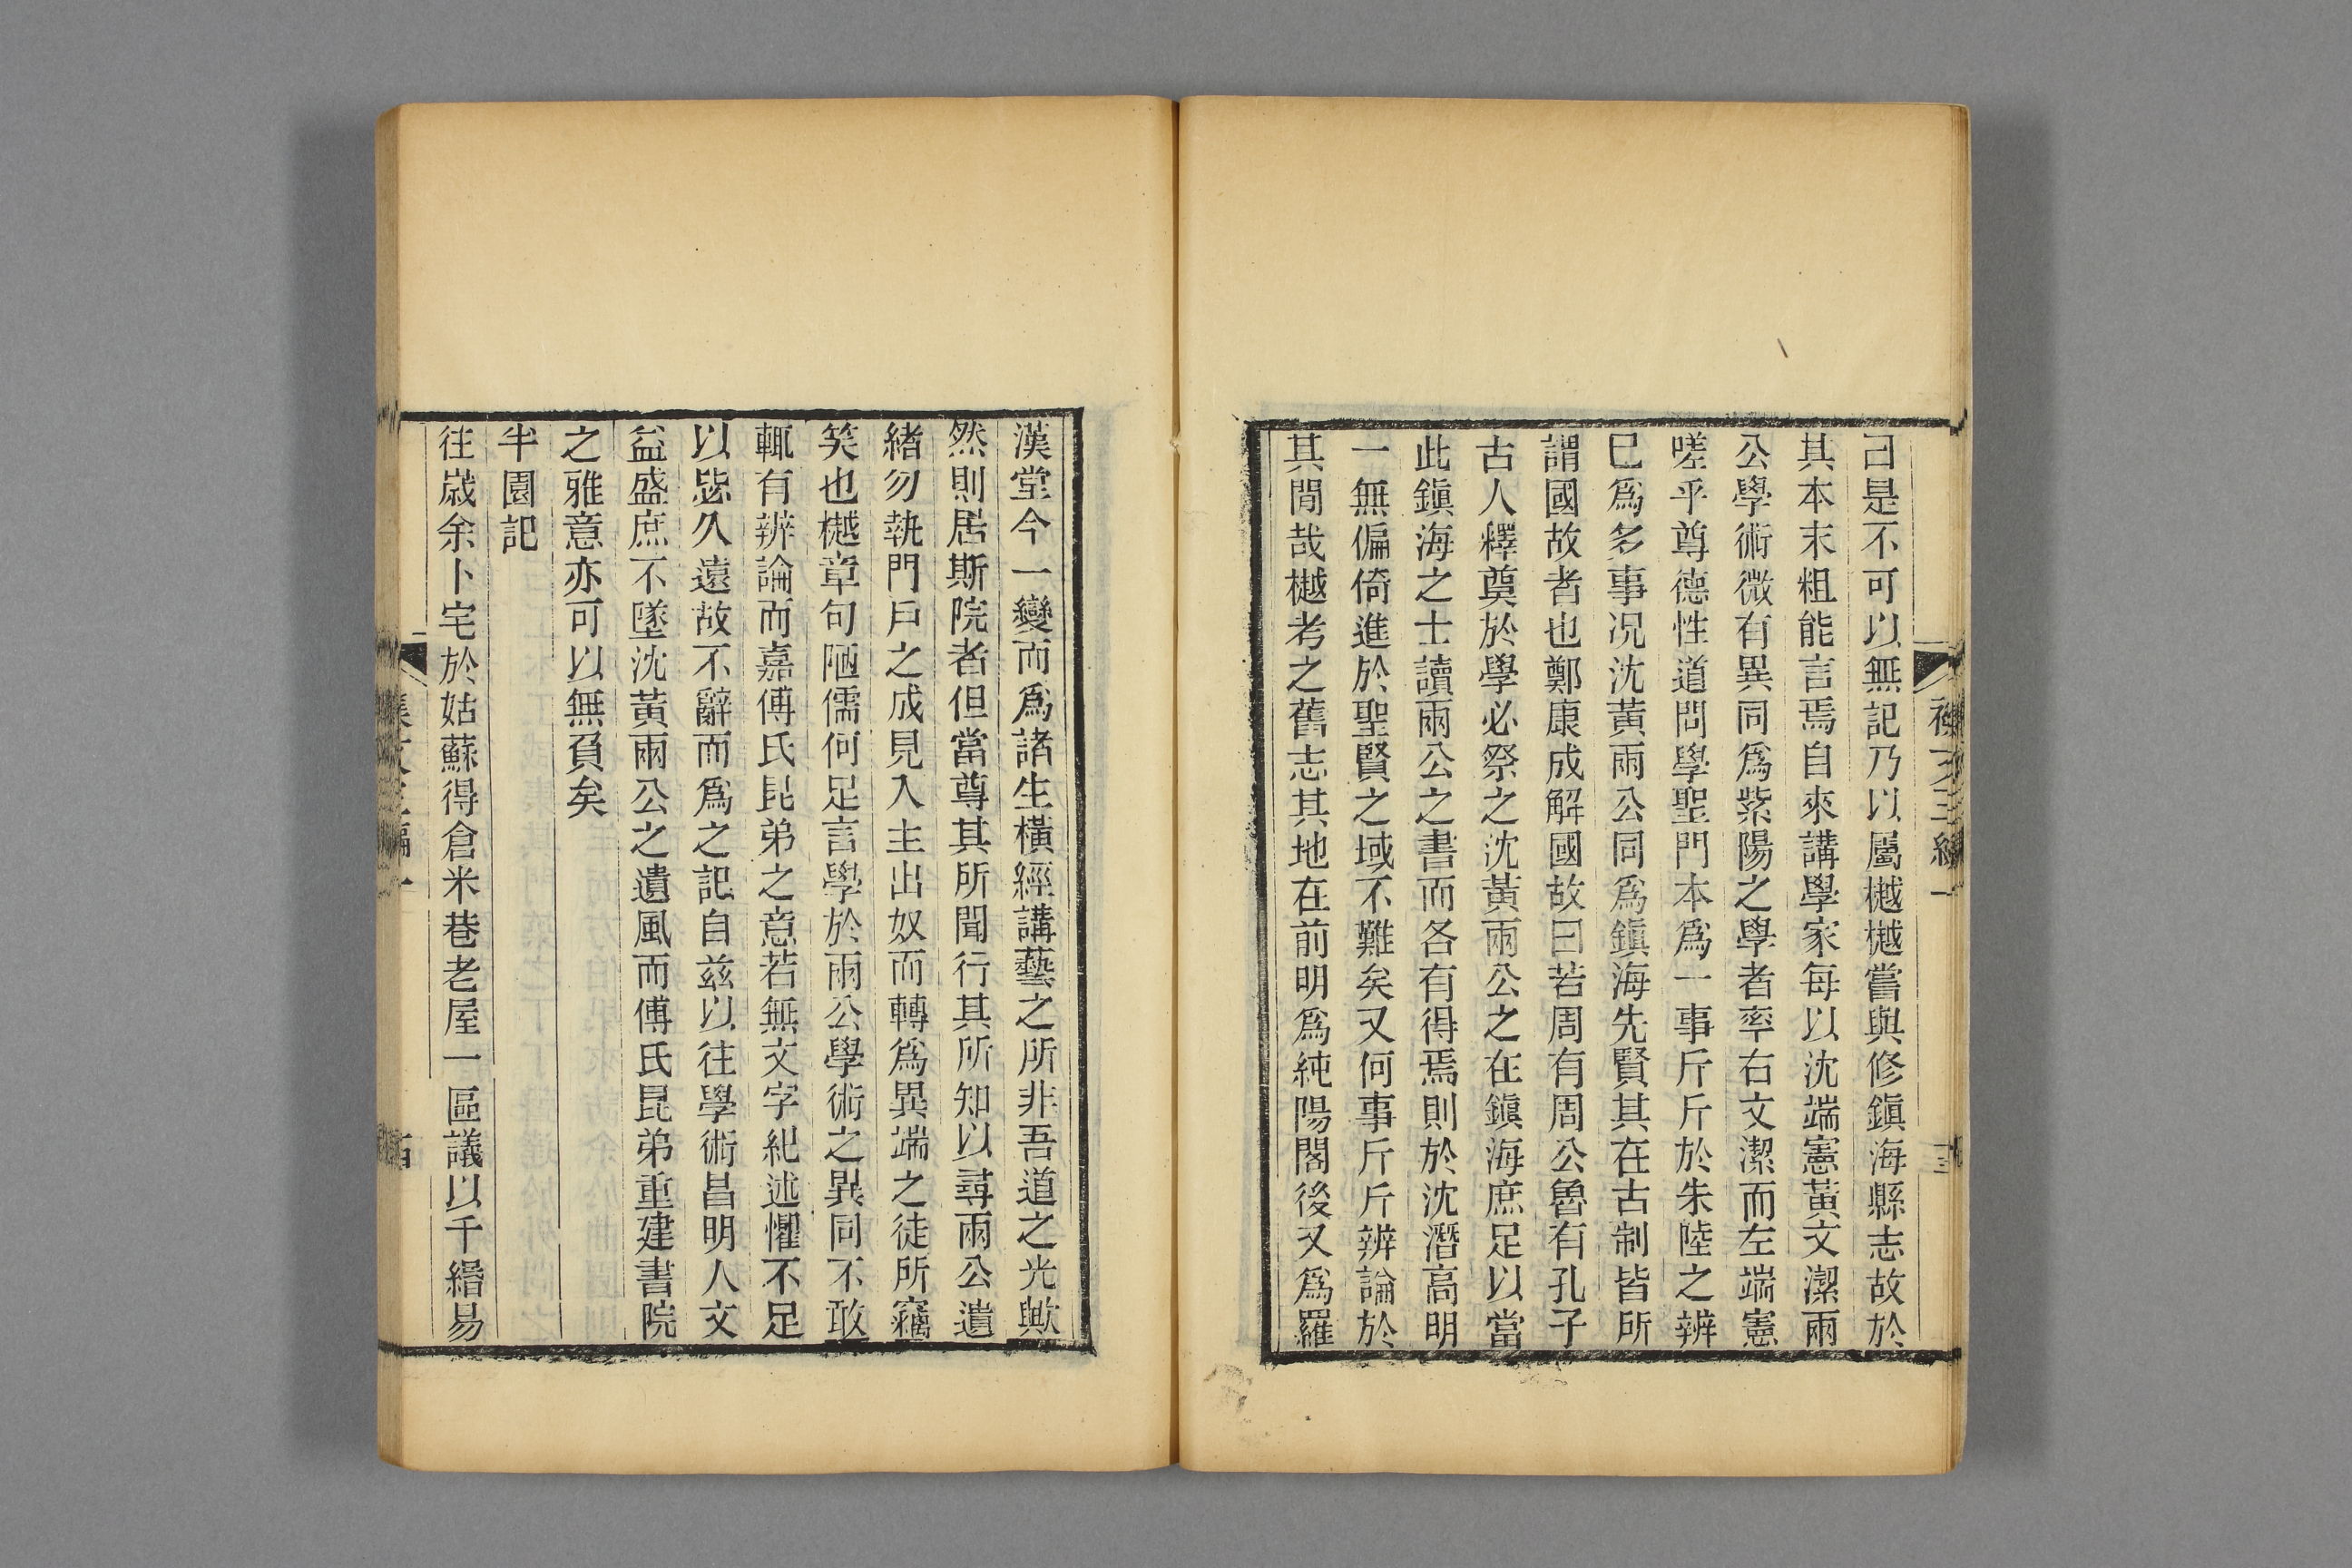 曰是不可以無記乃以屬樾樾嘗與修鎭海縣志故於
其本末粗能言焉自來講學家每以沈端憲黃文潔兩
公學術微有異同爲紫陽之學者率右文潔而左端憲
嗟乎尊德性道問學聖門本爲一事斤斤於朱陸之辨
已爲多事况沈黃兩公同爲鎭海先賢其在古制皆所
謂國故者也鄭康成解國故曰若周有周公魯有孔子
古人釋奠於學必祭之沈黃兩公之在鎭海庶足以當
此鎭海之士讀兩公之書而各有得焉則於沈潛高明
一無偏倚進於聖賢之域不難矣又何事斤斤辨論於
其閒哉樾考之舊志其地在前明爲純陽閣後又爲羅
漢堂今一變而爲諸生橫經講藝之所非吾道之光歟
然則居斯院者但當尊其所聞行其所知以尋兩公遺
緒勿執門戶之成見入主出奴而轉爲異端之徒所竊
笑也樾章句陋儒何足言學於兩公學術之異同不敢
輒有辨論而嘉傅氏昆弟之意若無文字紀述懼不足
以毖久遠故不辭而爲之記自兹以往學術昌明人文
益盛庶不墜沈黃兩公之遺風而傅氏昆弟重建書院
之雅意亦可以無負矣
半園記
往歲余卜宅於姑蘇得倉米巷老屋一區議以千緡易